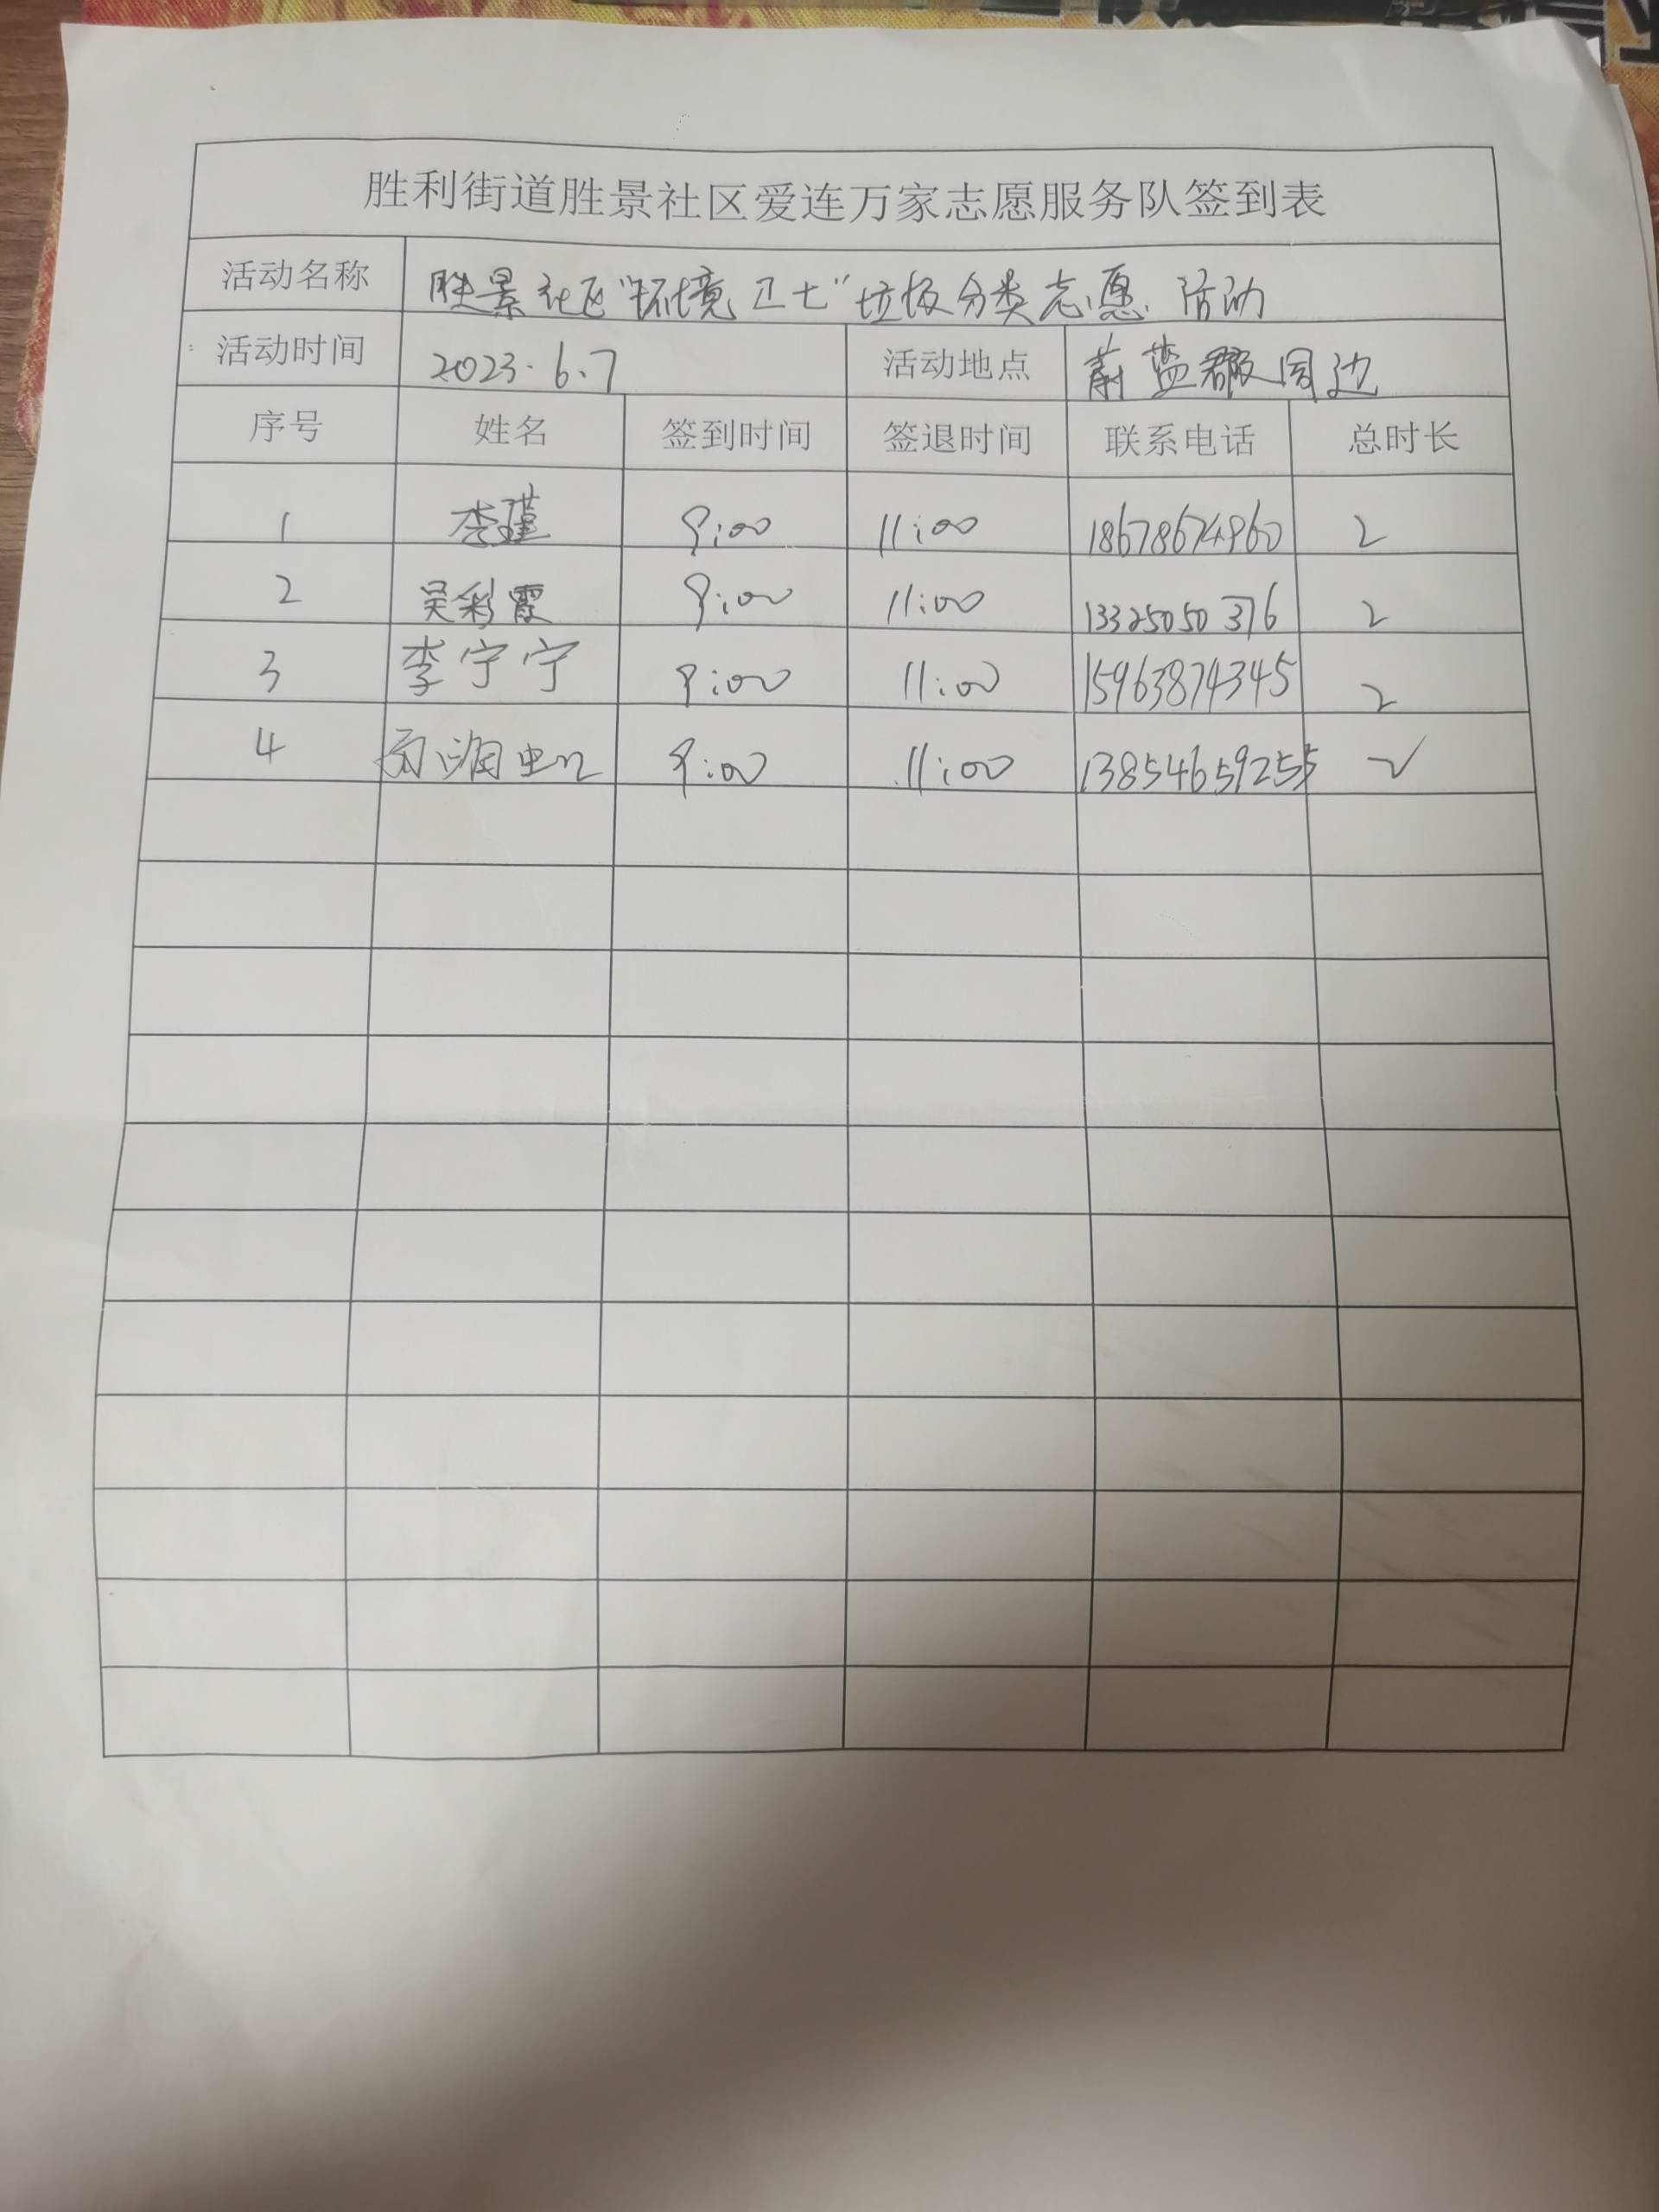 胜利街道胜景社区爱连万家志愿服务队签到表
活动名称 胜景社区“环境卫士”垃圾分类志愿活动
活动时间 2023.6.7 活动地点 蔚蓝郡周边
序号 姓名 签到时间 签退时间 联系电话 总时长
1 李瑾 9:00 11:00 18678674960 2
2 吴彩霞 9:00 11:00 13325050376 2
3 李宁宁 9:00 11:00 15963874345 2
4 9:00 11:00 13854659255 2